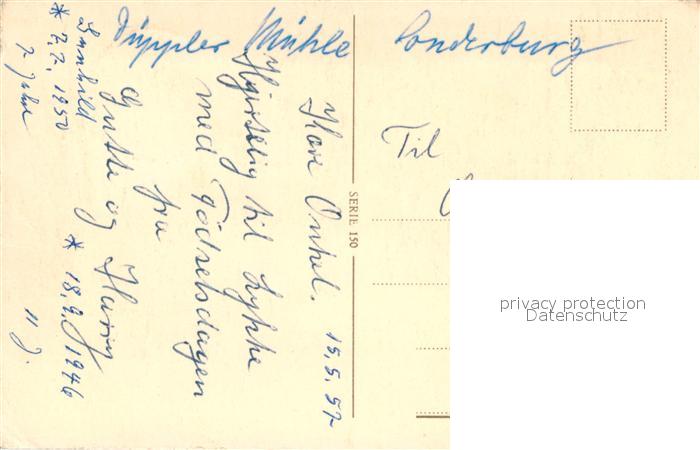 Düppler Mühle Sonderburg
15.5.57
Kære Onkel.
Hjertelig til Lykke
med Födselsdagen
fra
Gutte og Harry
* 18.2.1946
11 J.
* 7.2.1950
7 Jahre
Til
SERIE 150
privacy protection
Datenschutz